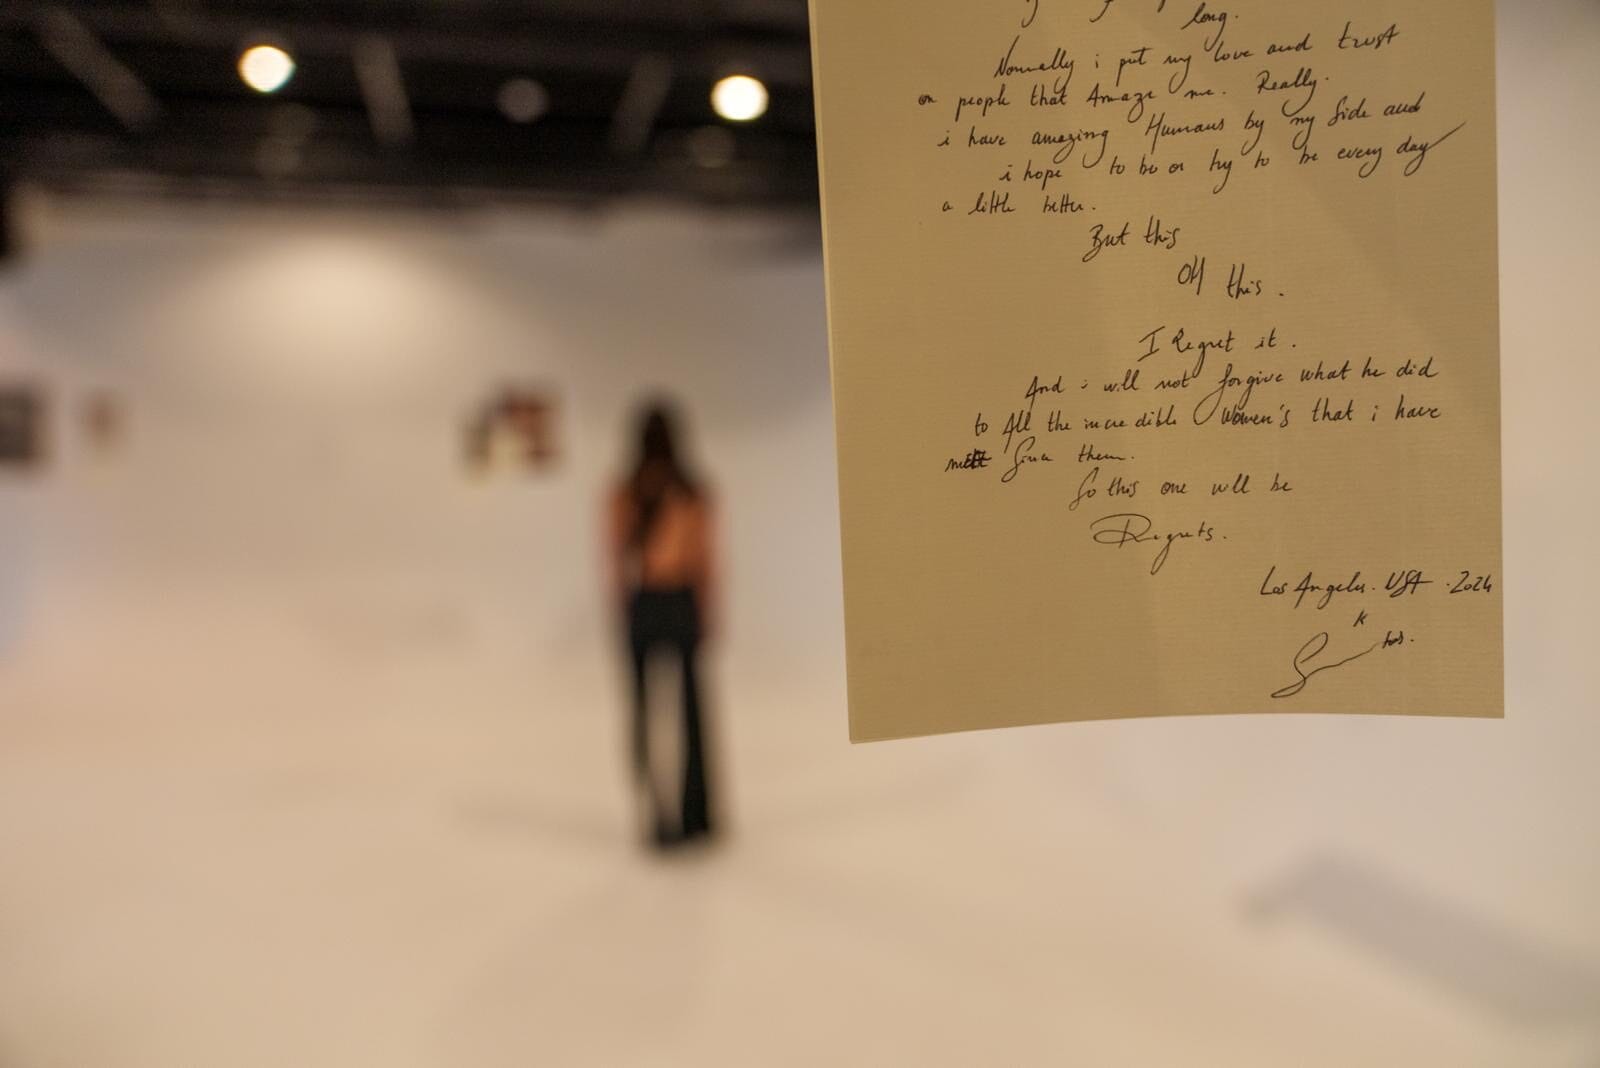 long.
Normally i put my love and trust
on people that Amaze me. Really.
i have amazing Humans by my side and
i hope to be or try to be every day
a little better.
But this
OH this.
I Regret it.
And i will not forgive what he did
to All the incredible Women's that i have
mett Since them.
So this one will be
Regrets.
Los Angeles. USA .2024
K